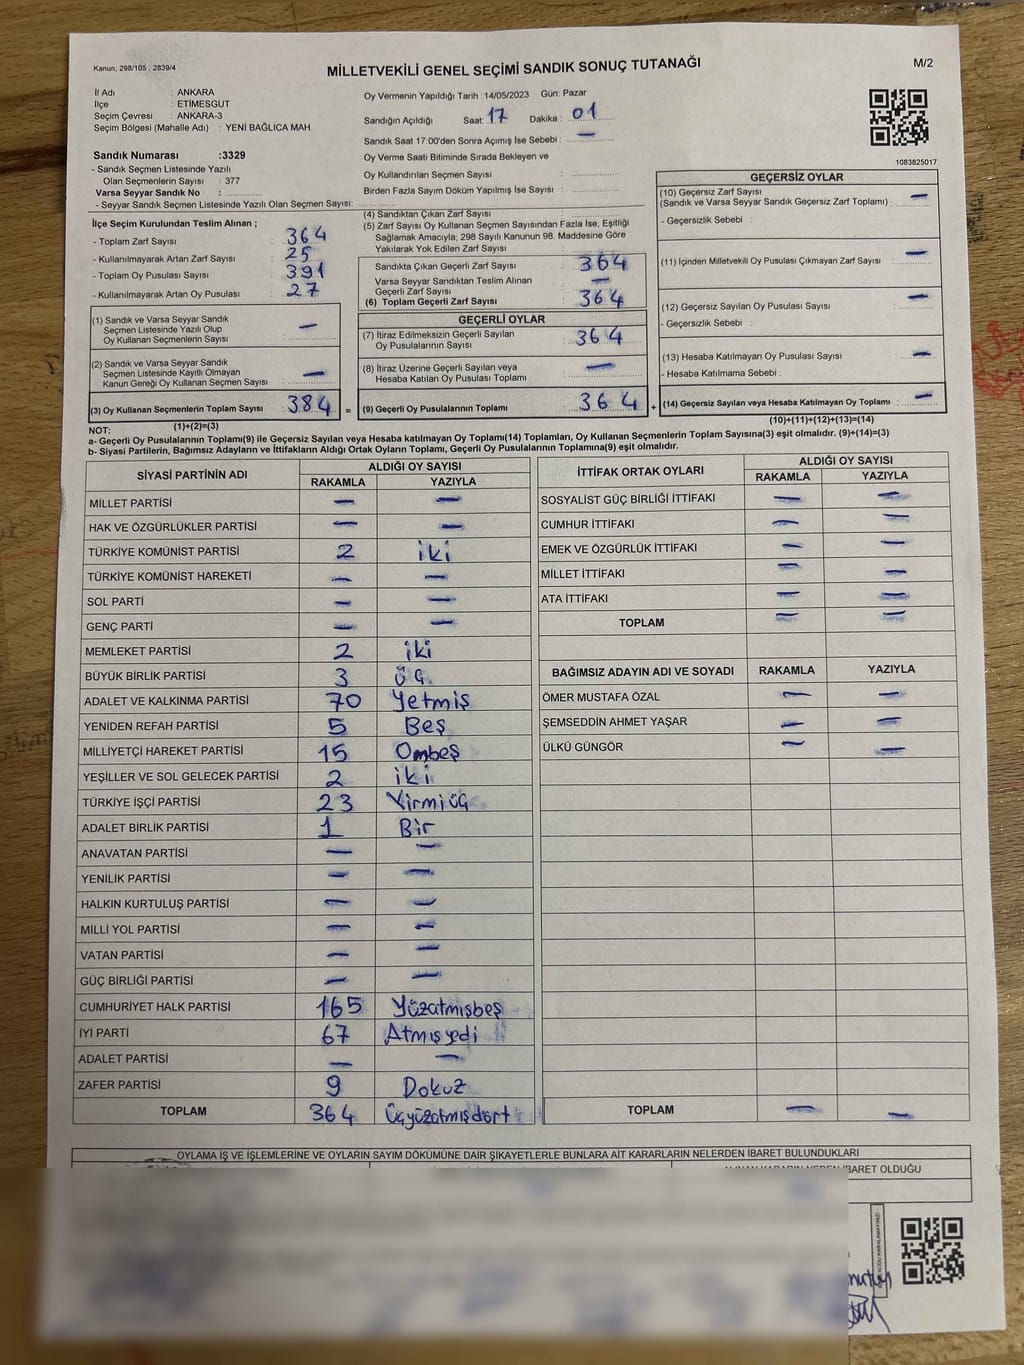 Kanun; 298/105 , 2839/4
MİLLETVEKİLİ GENEL SEÇİMİ SANDIK SONUÇ TUTANAĞI
M/2
İl Adı : ANKARA
İlçe : ETİMESGUT
Seçim Çevresi : ANKARA-3
Seçim Bölgesi (Mahalle Adı) : YENİ BAĞLICA MAH.
Oy Vermenin Yapıldığı Tarih : 14/05/2023 Gün: Pazar
Sandığın Açıldığı Saat: 17 Dakika : 01
Sandık Saat 17.00'den Sonra Açımış İse Sebebi : —
Oy Verme Saati Bitiminde Sırada Bekleyen ve
Oy Kullandırılan Seçmen Sayısı :
Birden Fazla Sayım Döküm Yapılmış İse Sayısı :
1083825017
Sandık Numarası :3329
- Sandık Seçmen Listesinde Yazılı
Olan Seçmenlerin Sayısı : 377
Varsa Seyyar Sandık No :
- Seyyar Sandık Seçmen Listesinde Yazılı Olan Seçmen Sayısı:
İlçe Seçim Kurulundan Teslim Alınan ;
- Toplam Zarf Sayısı : 364
- Kullanılmayarak Artan Zarf Sayısı : 25
- Toplam Oy Pusulası Sayısı : 391
- Kullanılmayarak Artan Oy Pusulası : 27
(1) Sandık ve Varsa Seyyar Sandık
Seçmen Listesinde Yazılı Olup
Oy Kullanan Seçmenlerin Sayısı : —
(2) Sandık ve Varsa Seyyar Sandık
Seçmen Listesinde Kayıtlı Olmayan
Kanun Gereği Oy Kullanan Seçmen Sayısı : —
(3) Oy Kullanan Seçmenlerin Toplam Sayısı : 384 =
(1)+(2)=(3)
(4) Sandıktan Çıkan Zarf Sayısı :
(5) Zarf Sayısı Oy Kullanan Seçmen Sayısından Fazla İse, Eşitliği
Sağlamak Amacıyla; 298 Sayılı Kanunun 98. Maddesine Göre
Yakılarak Yok Edilen Zarf Sayısı :
Sandıkta Çıkan Geçerli Zarf Sayısı : 364
Varsa Seyyar Sandıktan Teslim Alınan
Geçerli Zarf Sayısı : —
(6) Toplam Geçerli Zarf Sayısı : 364
GEÇERLİ OYLAR
(7) İtiraz Edilmeksizin Geçerli Sayılan
Oy Pusulalarının Sayısı : 364
(8) İtiraz Üzerine Geçerli Sayılan veya
Hesaba Katılan Oy Pusulası Toplamı : —
(9) Geçerli Oy Pusulalarının Toplamı : 364 +
GEÇERSİZ OYLAR
(10) Geçersiz Zarf Sayısı
(Sandık ve Varsa Seyyar Sandık Geçersiz Zarf Toplamı) : —
- Geçersizlik Sebebi :
(11) İçinden Milletvekili Oy Pusulası Çıkmayan Zarf Sayısı : —
(12) Geçersiz Sayılan Oy Pusulası Sayısı : —
- Geçersizlik Sebebi :
(13) Hesaba Katılmayan Oy Pusulası Sayısı : —
- Hesaba Katılmama Sebebi :
(14) Geçersiz Sayılan veya Hesaba Katılmayan Oy Toplamı : —
(10)+(11)+(12)+(13)=(14)
NOT:
a- Geçerli Oy Pusulalarının Toplamı(9) ile Geçersiz Sayılan veya Hesaba katılmayan Oy Toplamı(14) Toplamları, Oy Kullanan Seçmenlerin Toplam Sayısına(3) eşit olmalıdır. (9)+(14)=(3)
b- Siyasi Partilerin, Bağımsız Adayların ve İttifakların Aldığı Ortak Oyların Toplamı, Geçerli Oy Pusulalarının Toplamına(9) eşit olmalıdır.
SİYASİ PARTİNİN ADI ALDIĞI OY SAYISI
RAKAMLA YAZIYLA
MİLLET PARTİSİ — —
HAK VE ÖZGÜRLÜKLER PARTİSİ — —
TÜRKİYE KOMÜNİST PARTİSİ 2 iki
TÜRKİYE KOMÜNİST HAREKETİ — —
SOL PARTİ — —
GENÇ PARTİ — —
MEMLEKET PARTİSİ 2 iki
BÜYÜK BİRLİK PARTİSİ 3 üç
ADALET VE KALKINMA PARTİSİ 70 Yetmiş
YENİDEN REFAH PARTİSİ 5 Beş
MİLLİYETÇİ HAREKET PARTİSİ 15 Ombeş
YEŞİLLER VE SOL GELECEK PARTİSİ 2 iki
TÜRKİYE İŞÇİ PARTİSİ 23 Yirmiüç
ADALET BİRLİK PARTİSİ 1 Bir
ANAVATAN PARTİSİ — —
YENİLİK PARTİSİ — —
HALKIN KURTULUŞ PARTİSİ — —
MİLLİ YOL PARTİSİ — —
VATAN PARTİSİ — —
GÜÇ BİRLİĞİ PARTİSİ — —
CUMHURİYET HALK PARTİSİ 165 Yüzatmışbeş
İYİ PARTİ 67 Atmışyedi
ADALET PARTİSİ — —
ZAFER PARTİSİ 9 Dokuz
TOPLAM 364 Üçyüzatmışdört
İTTİFAK ORTAK OYLARI ALDIĞI OY SAYISI
RAKAMLA YAZIYLA
SOSYALİST GÜÇ BİRLİĞİ İTTİFAKI — —
CUMHUR İTTİFAKI — —
EMEK VE ÖZGÜRLÜK İTTİFAKI — —
MİLLET İTTİFAKI — —
ATA İTTİFAKI — —
TOPLAM — —
BAĞIMSIZ ADAYIN ADI VE SOYADI RAKAMLA YAZIYLA
ÖMER MUSTAFA ÖZAL — —
ŞEMSEDDİN AHMET YAŞAR — —
ÜLKÜ GÜNGÖR — —
TOPLAM — —
OYLAMA İŞ VE İŞLEMLERİNE VE OYLARIN SAYIM DÖKÜMÜNE DAİR ŞİKAYETLERLE BUNLARA AİT KARARLARIN NELERDEN İBARET BULUNDUKLARI
İBARET OLDUĞU